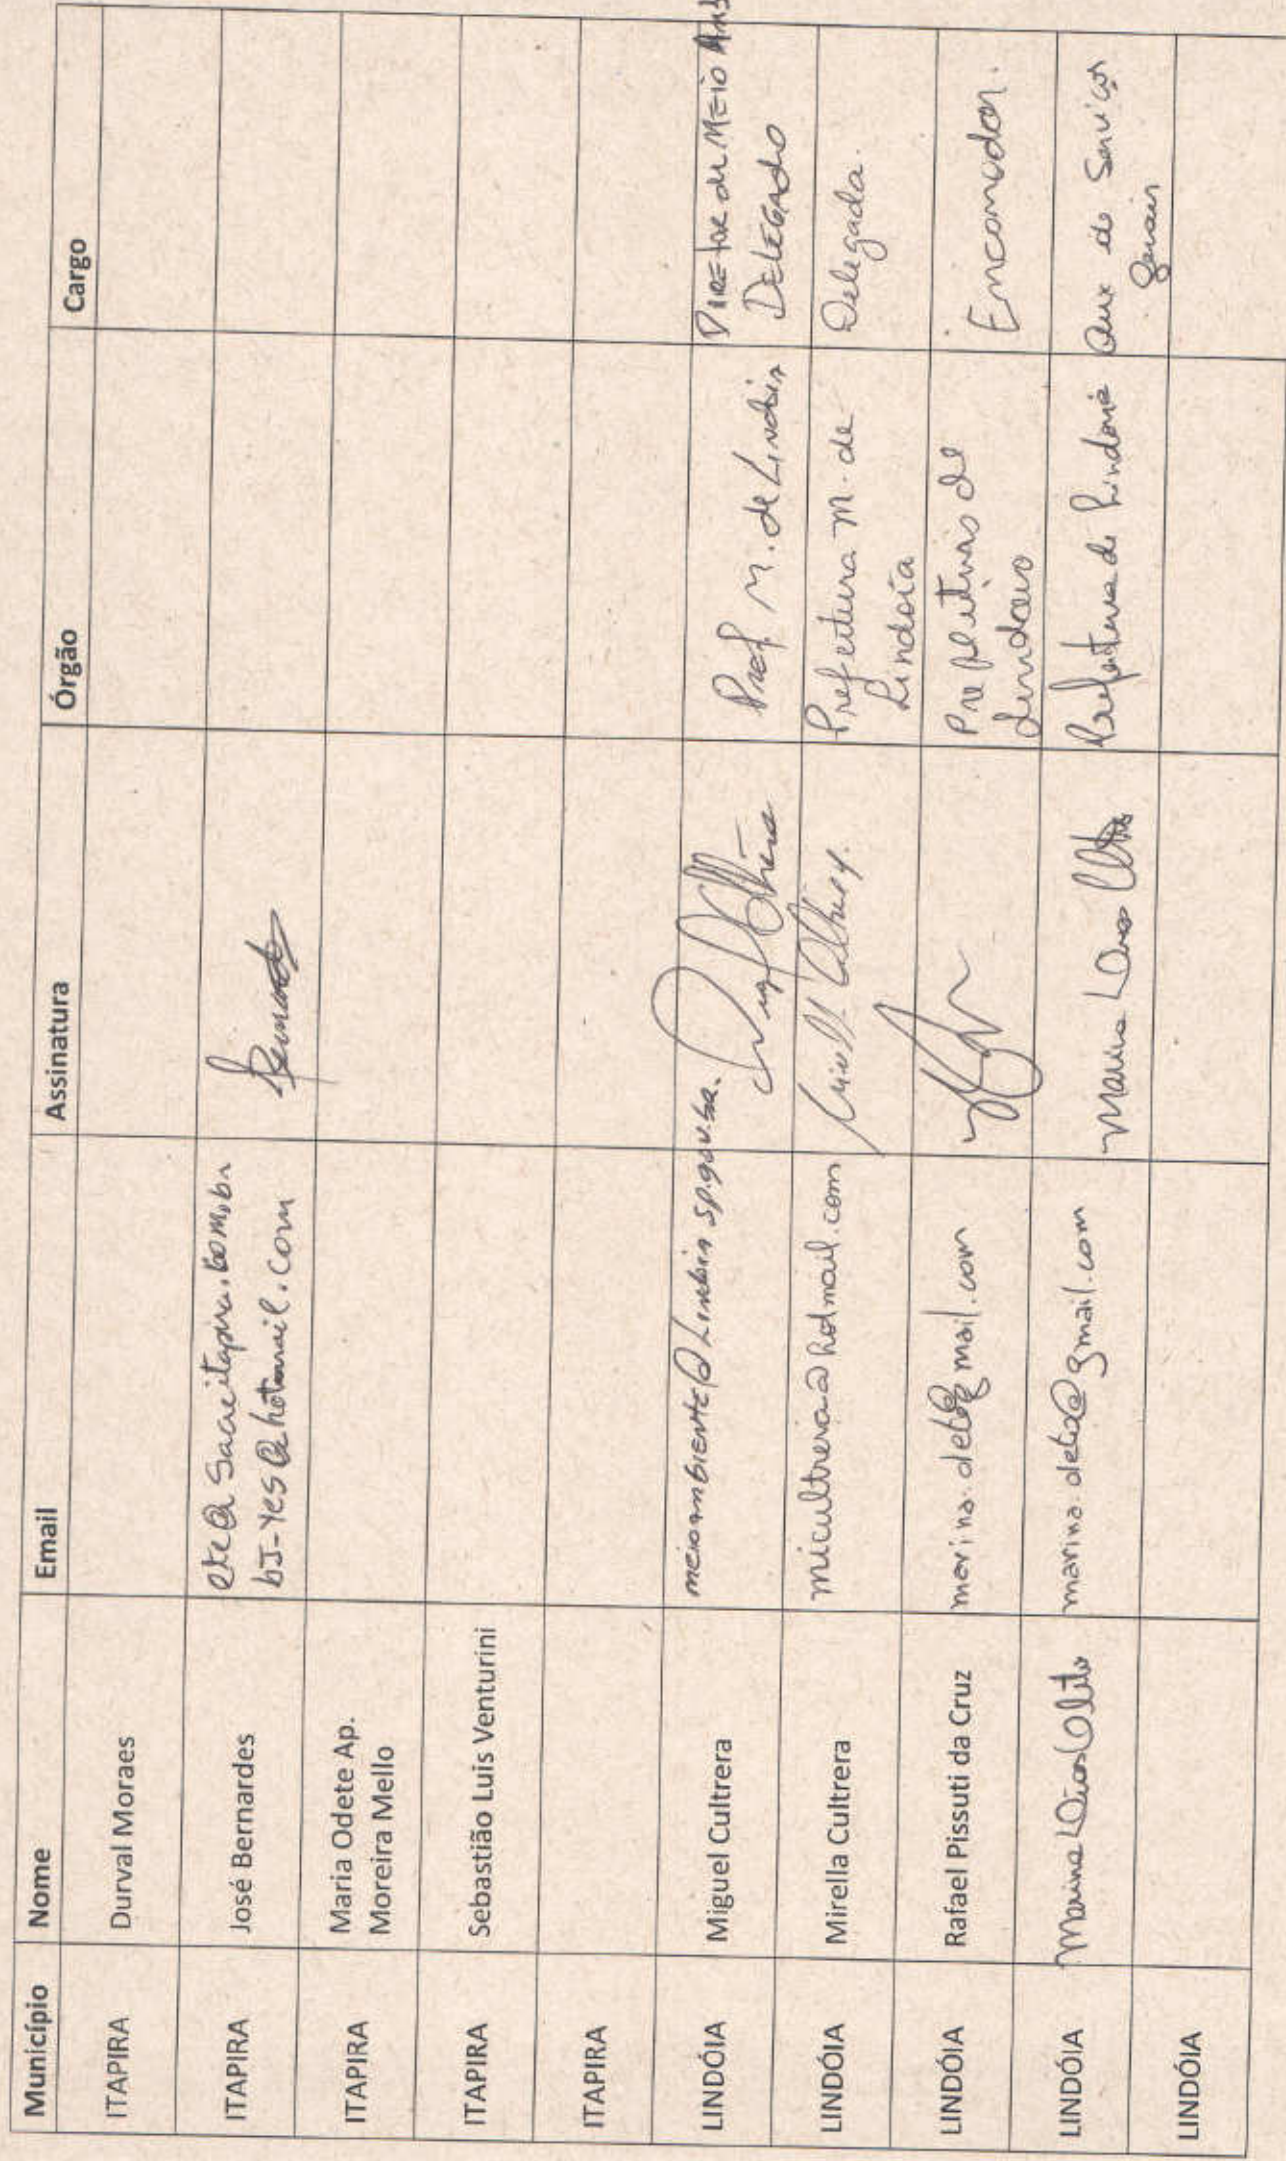 Município Nome Email Assinatura Órgão Cargo
ITAPIRA Durval Moraes
ITAPIRA José Bernardes
bJ-yes@hotmail.com
ITAPIRA Maria Odete Ap.
Moreira Mello
ITAPIRA Sebastião Luis Venturini
ITAPIRA
LINDÓIA Miguel Cultrera meioambiente@Lindoia.sp.gov.br. Pref. M. de Lindoia Diretor de Meio
DELEGADO
LINDÓIA Mirella Cultrera micultrera@hotmail.com Prefeitura M. de Delegada.
Lindoia
LINDÓIA Rafael Pissuti da Cruz gmail.com
LINDÓIA Marina Dias marina @gmail.com Marina Dias Prefeitura de Lindoia Aux de Serviços
gerais
LINDÓIA